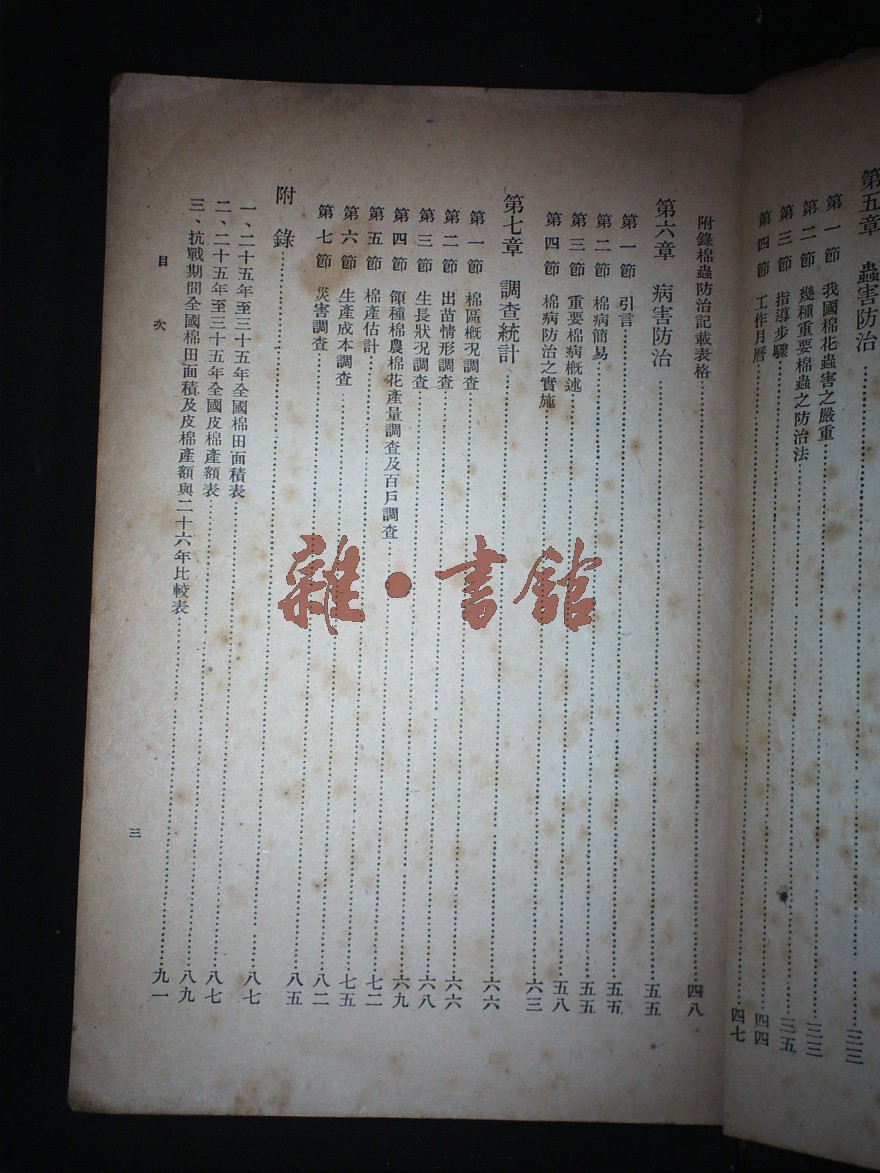 第五章　蟲害防治……三三
第一節　我國棉花蟲害之嚴重……三三
第二節　幾種重要棉蟲之防治法……三五
第三節　指導步驟……四四
第四節　工作月曆……四七
附錄棉蟲防治記載表格……四八
第六章　病害防治……五五
第一節　引言……五五
第二節　棉病簡易……五五
第三節　重要棉病概述……五八
第四節　棉病防治之實施……六三
第七章　調查統計……六六
第一節　棉區概况調查……六六
第二節　出苗情形調查……六八
第三節　生長狀况調查……六九
第四節　領種棉農棉花產量調查及百戶調查……七二
第五節　棉產估計……七五
第六節　生產成本調查……八二
第七節　災害調查……八五
附錄……八七
一、二十五年至三十五年全國棉田面積表……八七
二、二十五年至三十五年全國皮棉產額表……八九
三、抗戰期間全國棉田面積及皮棉產額與二十六年比較表……九一
目次
三
雜·書館